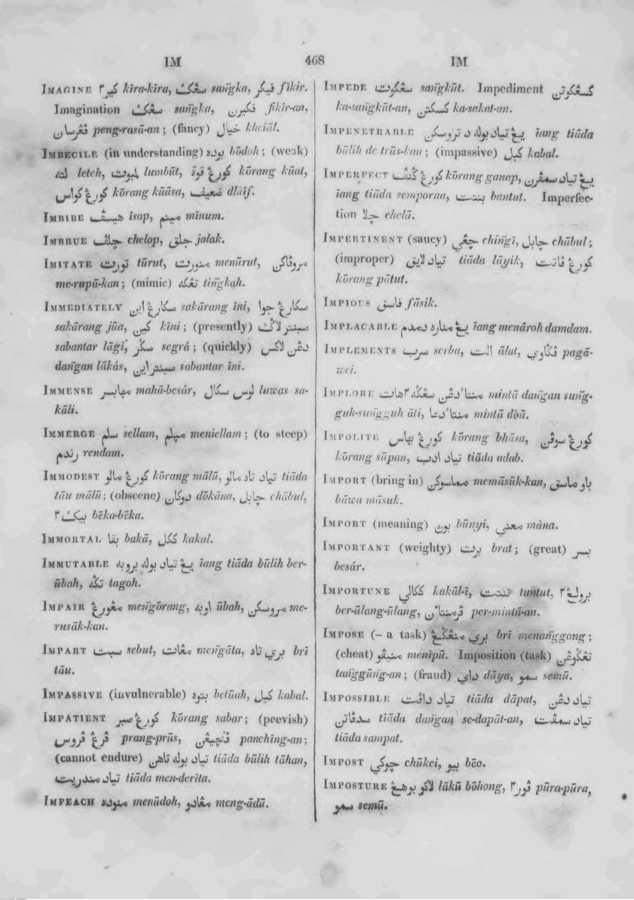 IM 468 IM
IMAGINE کیر٢ kīra-kīra, سڠک sañgka, فیکر fikir.
Imagination سڠک sañgka, فکیرن fikir-an,
ڤڠرسان peng-rasā-an; (fancy) خیال kheiāl.
IMBECILE (in understanding) بوده bōdoh; (weak)
لته leteh, لمبوت lumbūt, کورڠ قوة kōrang kūat,
کورڠ کواس kōrang kūāsa, ضعیف dlāif.
IMBIBE هیسڤ isap, مینم minum.
IMBRUE چلڤ chelop, جلق jalak.
IMITATE تورت tūrut, منورت menūrut,
me-rupā-kan; (mimic) tiñgkah.
IMMEDIATELY سکارڠ این sakārang ini, سکارڠ جوا
sakārang jūa, کیني kini; (presently) سبنتر لاݢ
sabantar lāgi, سݢر segrá; (quickly) دڠن لاکس
dañgan lākás, سبنتر این sabantar ini.
IMMENSE مهابسر mahā-besár, لوس سکال luwas sa-
kāli.
IMMERGE سلم sellam, میلم meniellam; (to steep)
رندم rendam.
IMMODEST کورڠ مالو kōrang mālū, تیاد تاد مالو tiāda
tāu mālū; (obscene) دوکان dōkāna, چابل chābul,
بیک٢ bēka-bēka.
IMMORTAL بقا bakā, ککل kakal.
IMMUTABLE یڠ تیاد بوله بروبه iang tiāda būlih ber-
ūbah, تݢه tagoh.
IMPAIR مڠورڠ meñgōrang, اوبه ūbah, مروسکن me-
rusāk-kan.
IMPART سبت sebut, مڠات meñgāta, بري تاد brī
tāu.
IMPASSIVE (invulnerable) بتوه betūah, کبل kabal.
IMPATIENT کورڠ صبر kōrang sabar; (peevish)
ڤرڠ ڤروس prang-prūs, ڤنچیڠن panching-an;
(cannot endure) تیاد بوله تاهن tiāda būlih tāhan,
تیاد مندریت tiāda men-derita.
IMPEACH منوده menūdoh, مڠادو meng-ādū.
IMPEDE سڠکوت sañgkūt. Impediment کسڠکوتن
ka-sañgkūt-an, کسکتن ka-sakat-an.
IMPENETRABLE یڠ تیاد بوله د تروسکن iang tiāda
būlih de trūs-kan; (impassive) کبل kabal.
IMPERFECT کورڠ ݢنف kōrang ganap, یڠ تیاد سمڤرن
iang tiāda semporna, بنتت bantut. Imperfec-
tion چلا chelā.
IMPERTINENT (saucy) چڠي chiñgī, چابل chābul;
(improper) تیاد لایق tiāda lāyik, کورڠ ڤاتت
kōrang pātut.
IMPIOUS فاسق fāsik.
IMPLACABLE یڠ مناره دمدم iang menāroh damdam.
IMPLEMENTS سرب serba, الت ālat, ڤݢاوي pagā-
wei.
IMPLORE منتا دڠن سڠݢه٢ هات mintā dañgan suñg-
guh-suñgguh āti, منتا دعا mintā dōā.
IMPOLITE کورڠ بهاس kōrang bhāsa, کورڠ سوڤن
kōrang sūpan, تیاد ادب tiāda adab.
IMPORT (bring in) مماسوکن memāsūk-kan, باو ماسق
bāwa māsuk.
IMPORT (meaning) بوڽي būnyi, معني māna.
IMPORTANT (weighty) برت brat; (great) بسر
besár.
IMPORTUNE ککالي kakāl-ī, تنتت tuntut, برولڠ٢
ber-ūlang-ūlang, ڤرمنتان per-mintā-an.
IMPOSE (– a task) بري منڠݢڠ brī menañggong;
(cheat) منیڤو menīpū. Imposition (task) تڠݢوڠن
tañggūng-an; (fraud) داي dāya, سمو semū.
IMPOSSIBLE تیاد داڤت tiāda dāpat, تیاد دڠن
سدڤاتن tiāda dañgan se-dapāt-an, تیاد سمڤت
tiāda sampat.
IMPOST چوکي chūkei, بیو bēo.
IMPOSTURE لاکو بوهڠ lākū bōhong, ڤور٢ pūra-pūra,
سمو semū.